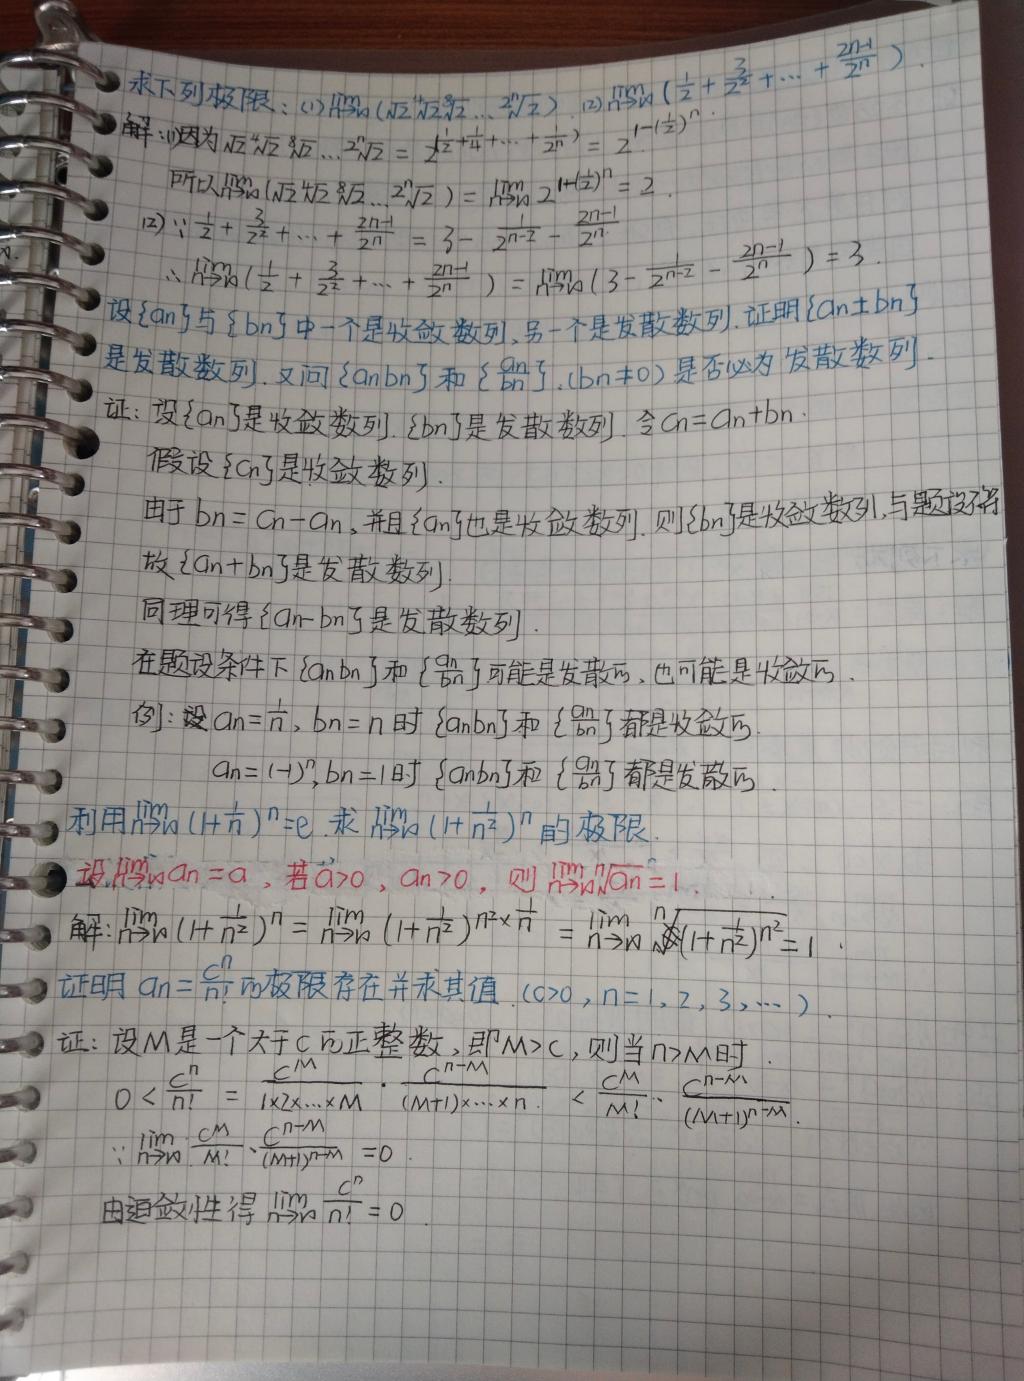 求下列极限:(1) lim n→∞ (√2 ⁴√2 ⁸√2 … 2ⁿ√2). (2) lim n→∞ (1/2 + 3/2² + … + (2n-1)/2ⁿ).
解:(1)因为 √2 ⁴√2 ⁸√2 … 2ⁿ√2 = 2^(1/2+1/4+…+1/2ⁿ) = 2^(1-(1/2)ⁿ).
所以 lim n→∞ (√2 ⁴√2 ⁸√2 … 2ⁿ√2) = lim n→∞ 2^(1-(1/2)ⁿ) = 2.
(2)∵ 1/2 + 3/2² + … + (2n-1)/2ⁿ = 3 - 1/2ⁿ⁻² - (2n-1)/2ⁿ
∴ lim n→∞ (1/2 + 3/2² + … + (2n-1)/2ⁿ) = lim n→∞ (3 - 1/2ⁿ⁻² - (2n-1)/2ⁿ) = 3.
设{an}与{bn}中一个是收敛数列,另一个是发散数列.证明{an±bn}
是发散数列.又问{anbn}和{an/bn}.(bn≠0)是否必为发散数列.
证:设{an}是收敛数列.{bn}是发散数列.令cn=an+bn.
假设{cn}是收敛数列.
由于bn=cn-an,并且{an}也是收敛数列.则{bn}是收敛数列,与题设不符
故{an+bn}是发散数列.
同理可得{an-bn}是发散数列.
在题设条件下{anbn}和{an/bn}可能是发散的,也可能是收敛的.
例:设an=1/n,bn=n时{anbn}和{an/bn}都是收敛的.
an=(-1)ⁿ,bn=1时{anbn}和{an/bn}都是发散的.
利用 lim n→∞ (1+1/n)ⁿ=e.求 lim n→∞ (1+1/n²)ⁿ的极限.
设 lim n→∞ an=a,若a>0,an>0,则 lim n→∞ ⁿ√an=1.
解: lim n→∞ (1+1/n²)ⁿ = lim n→∞ (1+1/n²)^(n²×1/n) = lim n→∞ ⁿ√((1+1/n²)^(n²)) = 1.
证明 an=cⁿ/n! 的极限存在并求其值.(c>0,n=1,2,3,…).
证:设M是一个大于c的正整数,即M>c,则当n>M时.
0 < cⁿ/n! = c^M/(1×2×…×M) · c^(n-M)/((M+1)×…×n) < c^M/M! · c^(n-M)/(M+1)^(n-M).
∵ lim n→∞ c^M/M! · c^(n-M)/(M+1)^(n-M) = 0.
由迫敛性得 lim n→∞ cⁿ/n! = 0.